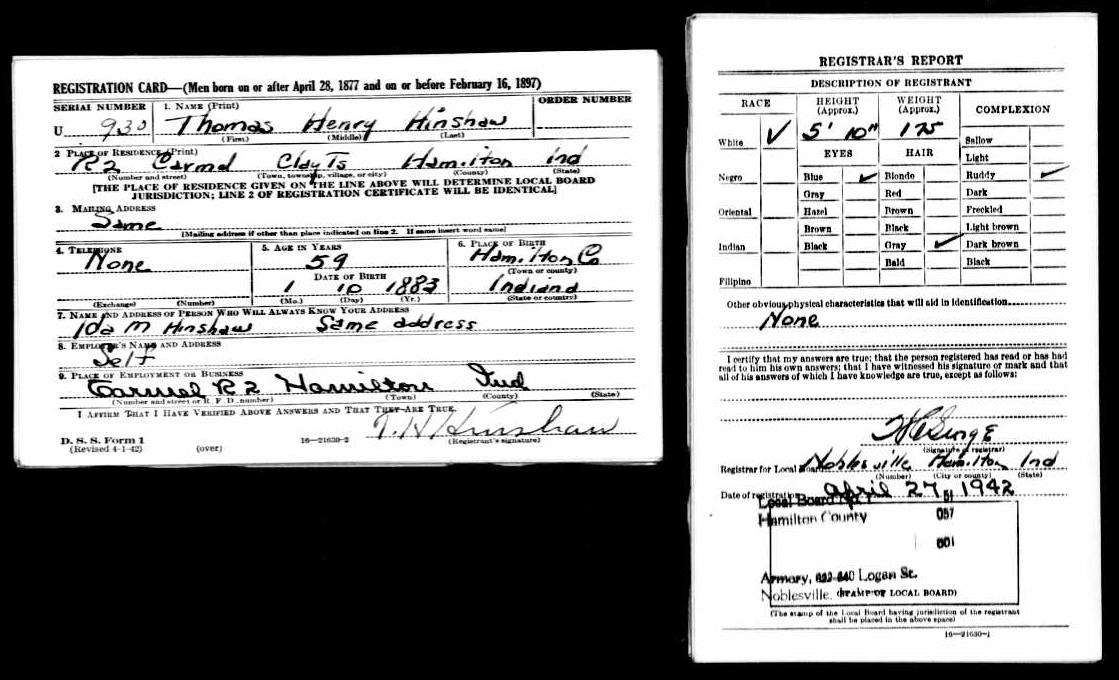 REGISTRATION CARD—(Men born on or after April 28, 1877 and on or before February 16, 1897)
SERIAL NUMBER 1. NAME (Print) ORDER NUMBER
U 930 Thomas Henry Hinshaw
(First) (Middle) (Last)
2 PLACE OF RESIDENCE (Print)
R2 Carmel Clay Ts Hamilton Ind
(Number and street) (Town, township, village, or city) (County) (State)
[THE PLACE OF RESIDENCE GIVEN ON THE LINE ABOVE WILL DETERMINE LOCAL BOARD
JURISDICTION; LINE 2 OF REGISTRATION CERTIFICATE WILL BE IDENTICAL]
3. MAILING ADDRESS
Same
[Mailing address if other than place indicated on line 2. If same insert word same]
4. TELEPHONE 5. AGE IN YEARS 6. PLACE OF BIRTH
None 59 Hamilton Co
DATE OF BIRTH (Town or county)
1 10 1883 Indiana
(Exchange) (Number) (Mo.) (Day) (Yr.) (State or country)
7. NAME AND ADDRESS OF PERSON WHO WILL ALWAYS KNOW YOUR ADDRESS
Ida M Hinshaw Same address
8. EMPLOYER'S NAME AND ADDRESS
Self
9. PLACE OF EMPLOYMENT OR BUSINESS
Carmel R2 Hamilton Ind
(Number and street or R. F. D. number) (Town) (County) (State)
I AFFIRM THAT I HAVE VERIFIED ABOVE ANSWERS AND THAT THEY ARE TRUE.
T. H Hinshaw
D. S. S. Form 1 16—21630-2 (Registrant's signature)
(Revised 4-1-42) (over)
REGISTRAR'S REPORT
DESCRIPTION OF REGISTRANT
RACE HEIGHT (Approx.) WEIGHT (Approx.) COMPLEXION
White 5' 10" 175 Sallow
EYES HAIR Light
Negro Blue Blonde Ruddy
Gray Red Dark
Oriental Hazel Brown Freckled
Brown Black Light brown
Indian Black Gray Dark brown
Bald Black
Filipino
Other obvious physical characteristics that will aid in identification
None
I certify that my answers are true; that the person registered has read or has had
read to him his own answers; that I have witnessed his signature or mark and that
all of his answers of which I have knowledge are true, except as follows:
(Signature of registrar)
Registrar for Local Board Noblesville Hamilton Ind
(Number) (City or county) (State)
Date of registration April 27, 1942
Local Board No. 1 51
Hamilton County 057
001
Armory, Logan St.
Noblesville. (STAMP OF LOCAL BOARD)
(The stamp of the Local Board having jurisdiction of the registrant
shall be placed in the above space)
16—21630-1